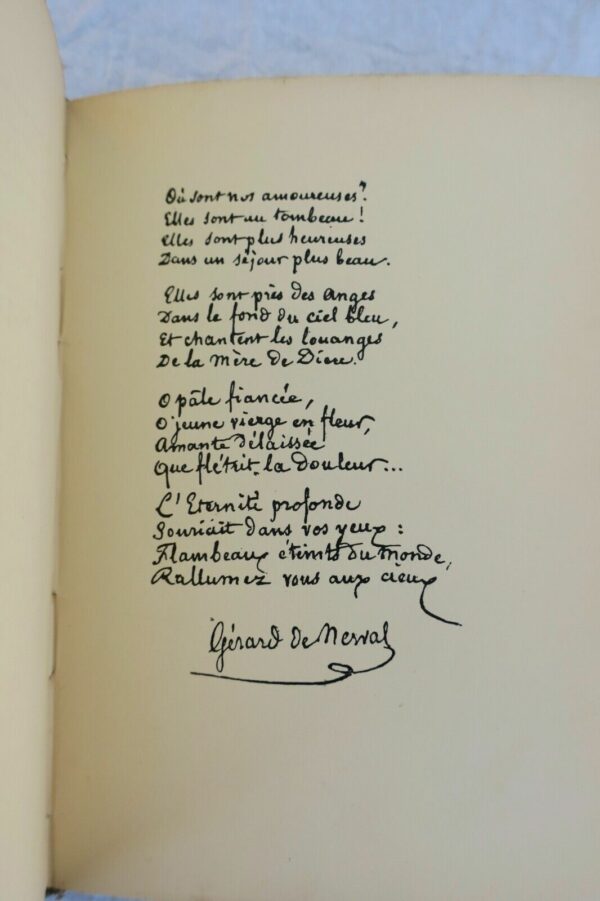 Où sont nos amoureuses?
Elles sont au tombeau!
Elles sont plus heureuses
Dans un séjour plus beau.
Elles sont près des anges
Dans le fond du ciel bleu,
Et chantent les louanges
De la Mère de Dieu.
O pâle fiancée,
O jeune vierge en fleur,
Amante délaissée
Que flétrit la douleur...
L'Eternité profonde
Souriait dans vos yeux:
Flambeaux éteints du monde,
Rallumez vous aux cieux
Gérard de Nerval